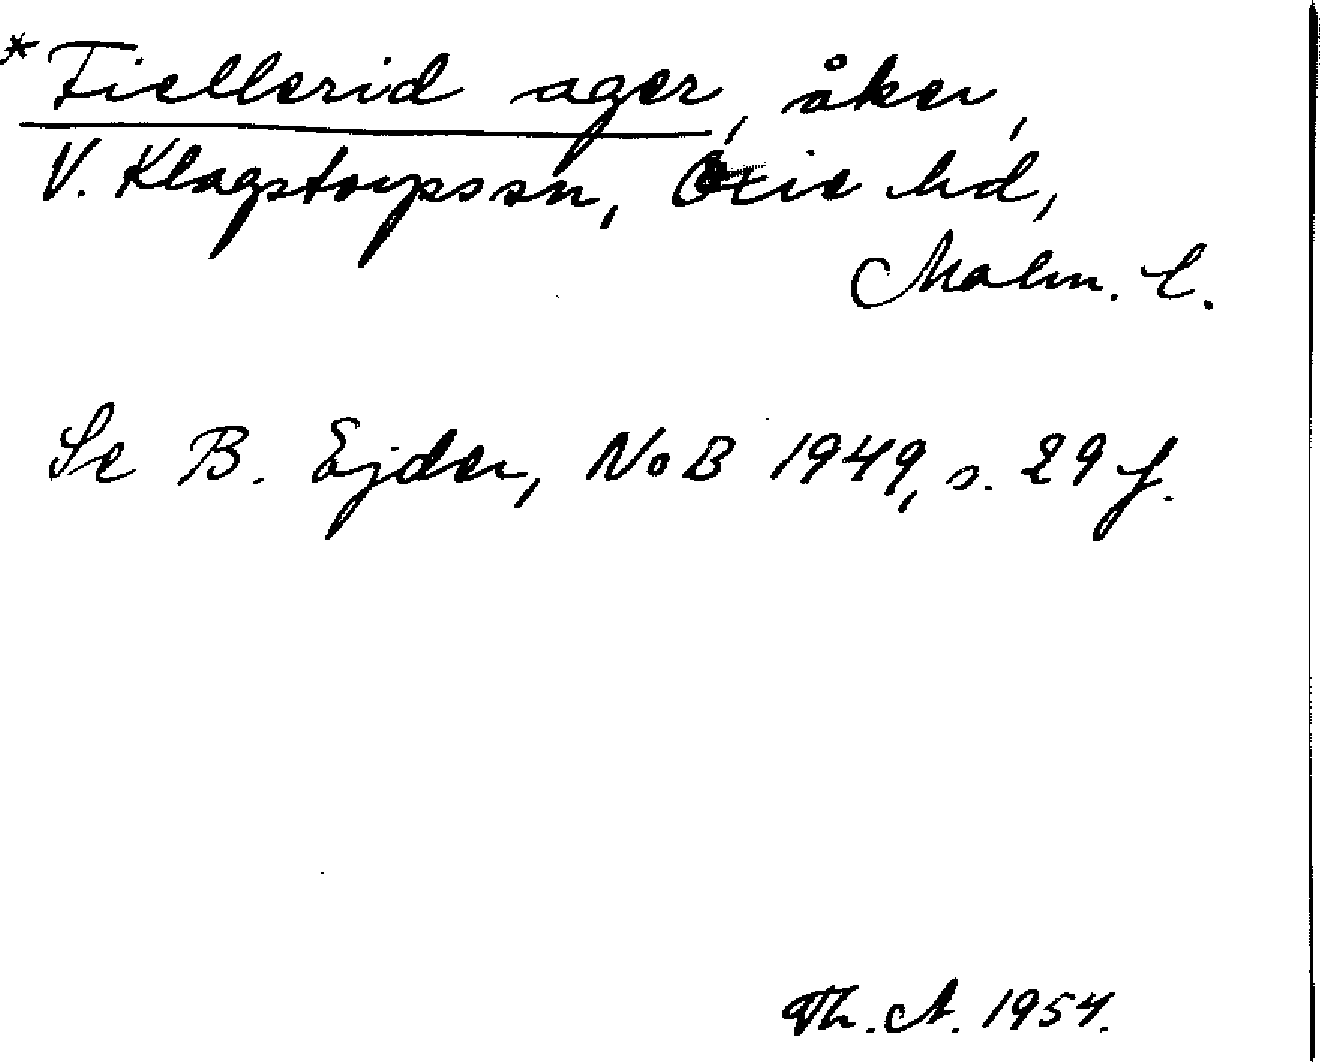 * Fiellerid ager, åker,
V. Klagstorpssn, Oxie hd,
Malm. l.
Se B. Ejder, NoB 1949, s. 29 f.
Th. A. 1954.